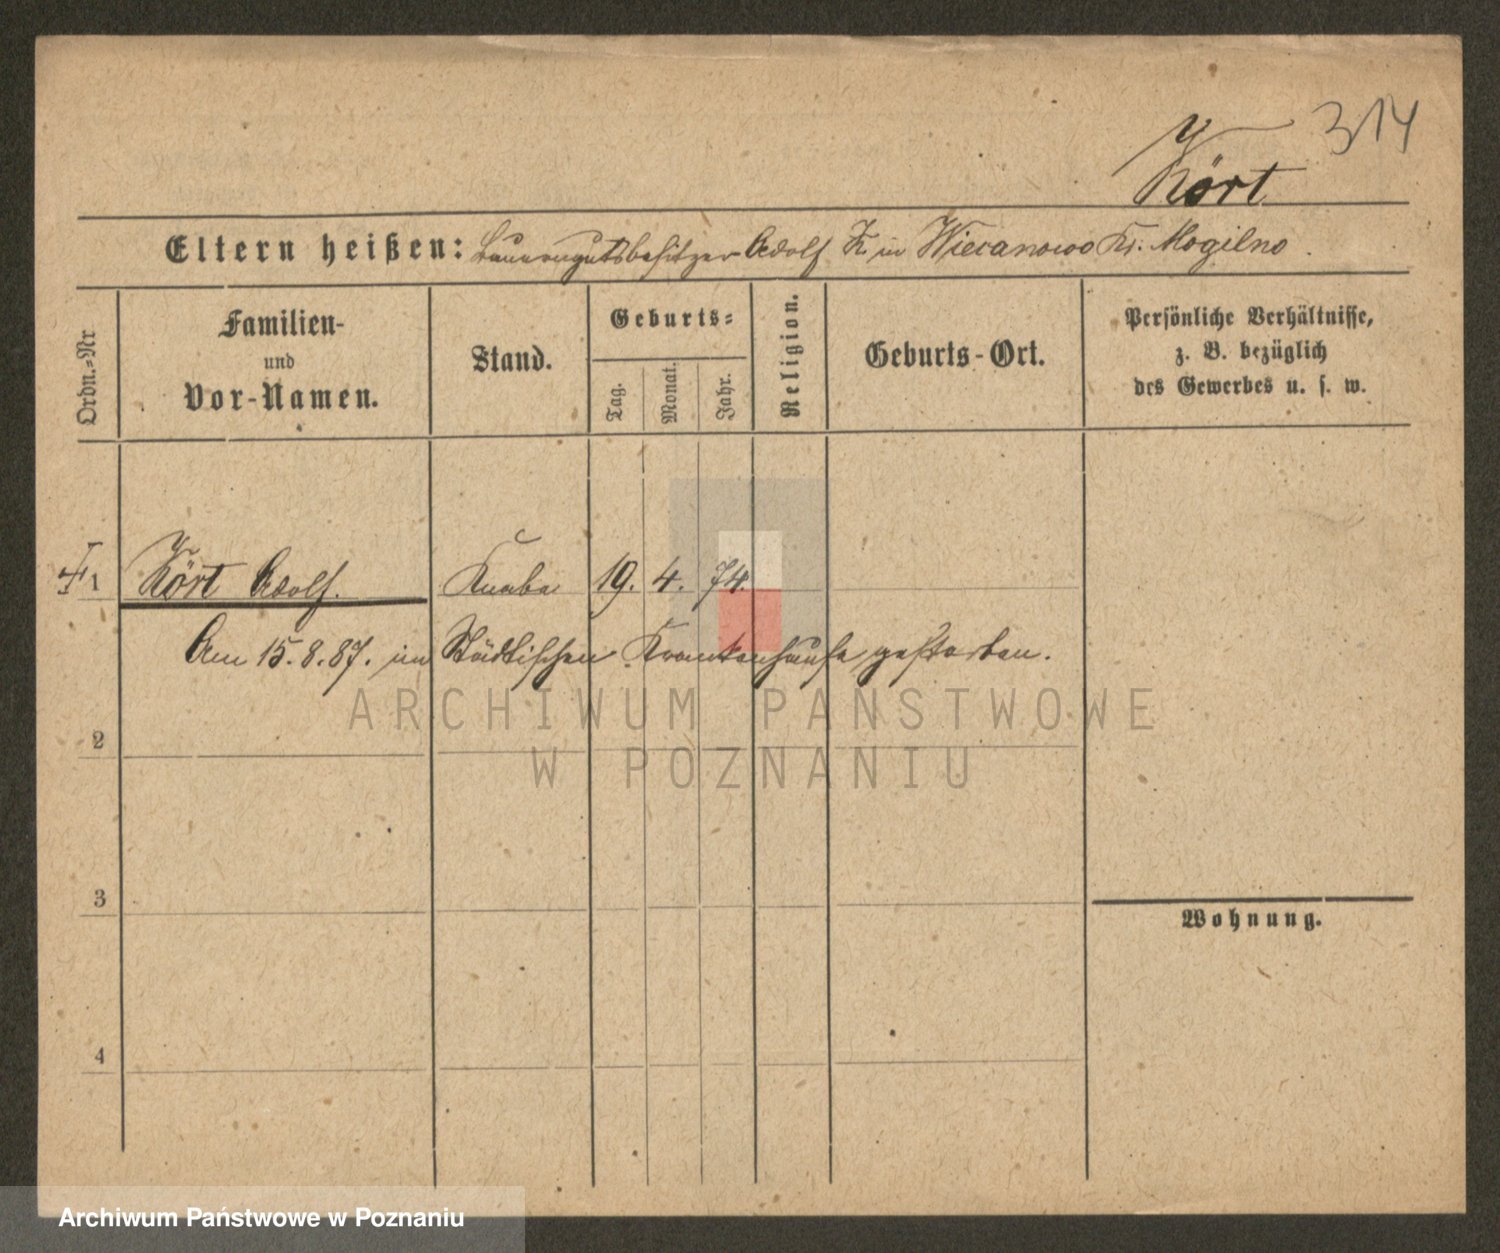 314
Kört
Eltern heißen: Bauerngutsbesitzer Adolf K. in Wiecanowo Kr. Mogilno.
Ordn.-Nr
Familien-
und
Vor-Namen.
Stand.
Geburts-
Tag.
Monat.
Jahr.
Religion.
Geburts-Ort.
Persönliche Verhältnisse,
z. B. bezüglich
des Gewerbes u. s. w.
1 Kört Adolf. Knabe 19. 4. 74.
Am 15.8.87. im Städtischen Krankenhause gestorben.
ARCHIWUM PAŃSTWOWE
W POZNANIU
2
3
Wohnung.
4
Archiwum Państwowe w Poznaniu